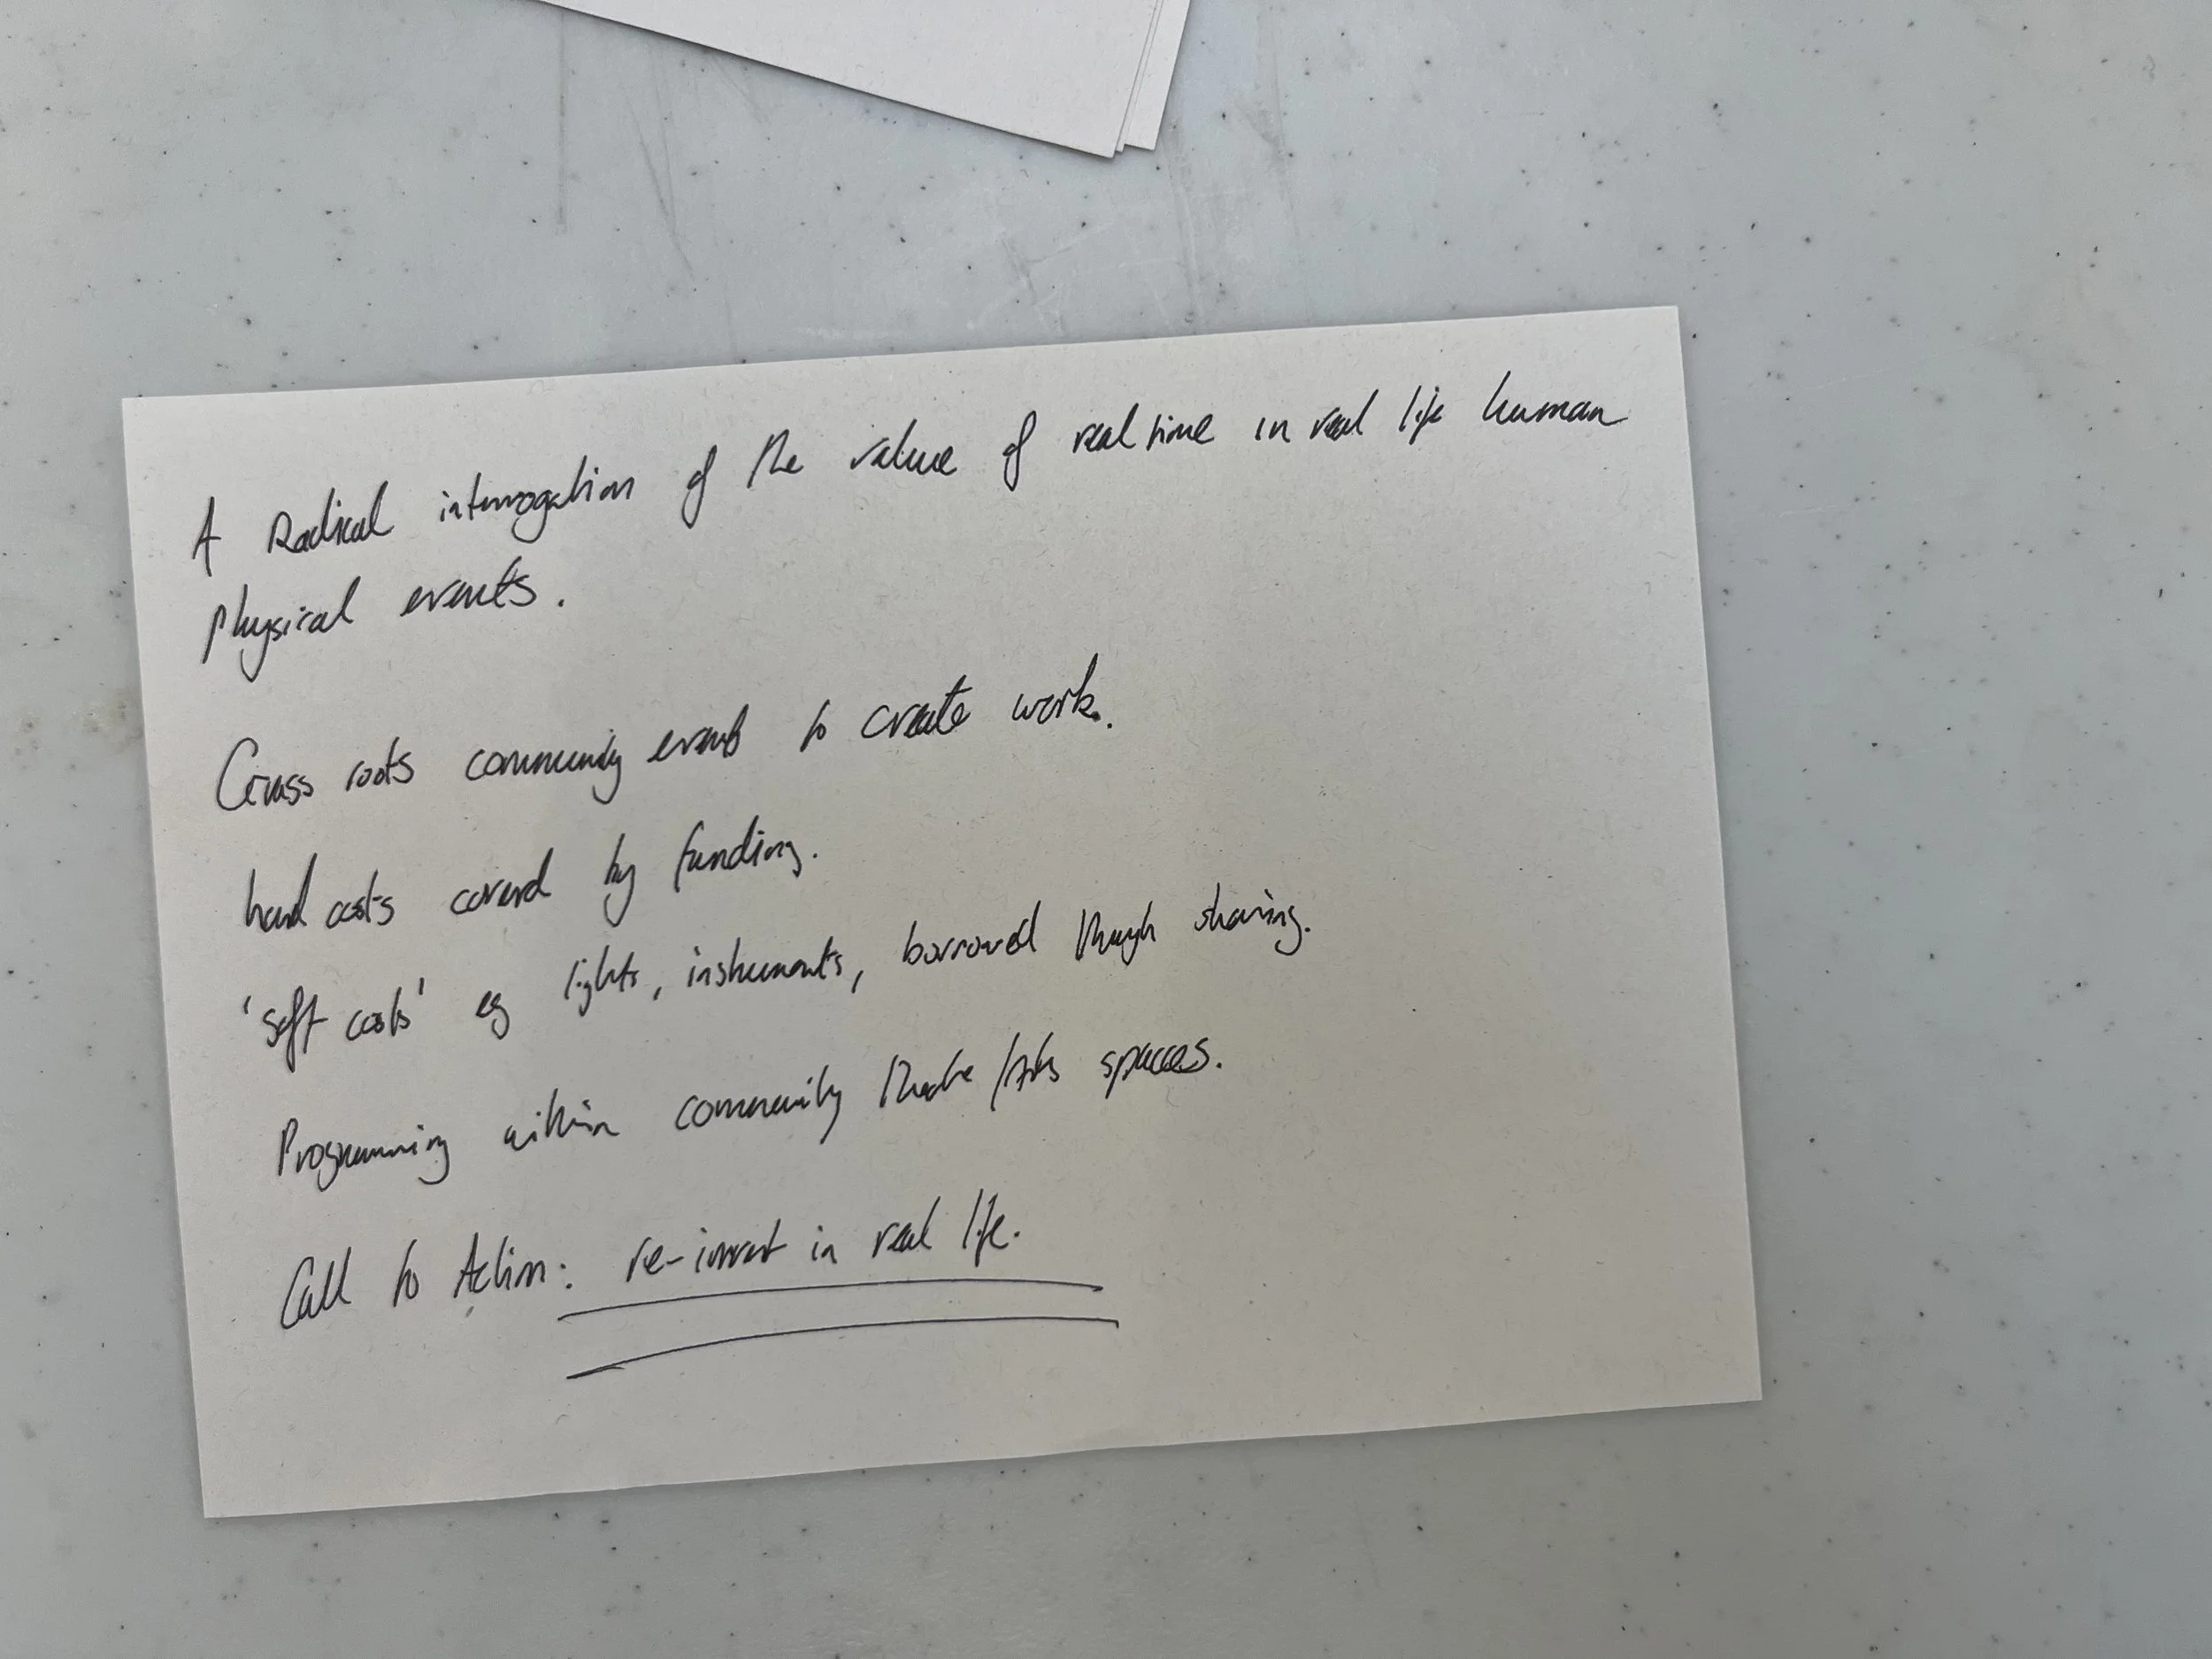 A Radical interrogation of the value of real time in real life human
physical events.
Grass roots community events to create work.
hard costs covered by funding.
'soft costs' eg lights, instruments, borrowed through sharing.
Programming within community theatre/Arts spaces.
Call to Action: re-invest in real life.